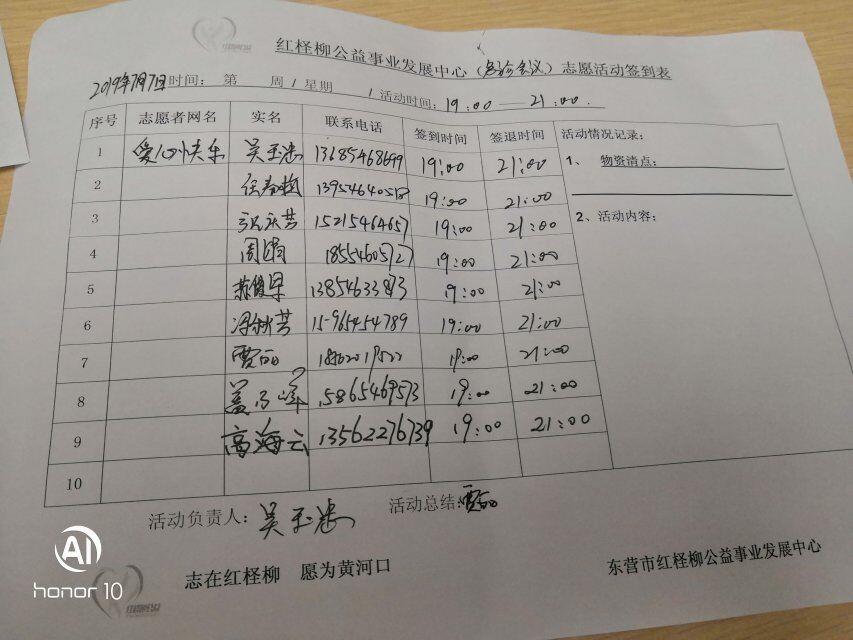 红柽柳公益事业发展中心（ 会议）志愿活动签到表
2019年7月7日时间： 第 周/星期 /活动时间：19:00—21:00.
序号 志愿者网名 实名 联系电话 签到时间 签退时间 活动情况记录：
1 爱心快乐 吴玉忠 13685468699 19:00 21:00 1、 物资清点：
2 任春梅 13954640518 19:00 21:00
3 张庆芳 15215464657 19:00 21:00 2、活动内容：
4 周娟 18554605727 19:00 21:00
5 苏俊军 13854633873 19:00 21:00
6 冯秋芳 15-965454789 19:00 21:00
7 贾丽 19:00 21:00
8 盖 峰 15865469573 19:00 21:00
9 高海云 13562276739 19:00 21:00
10
活动负责人：吴玉忠 活动总结：贾丽
志在红柽柳 愿为黄河口 东营市红柽柳公益事业发展中心
AI
honor 10